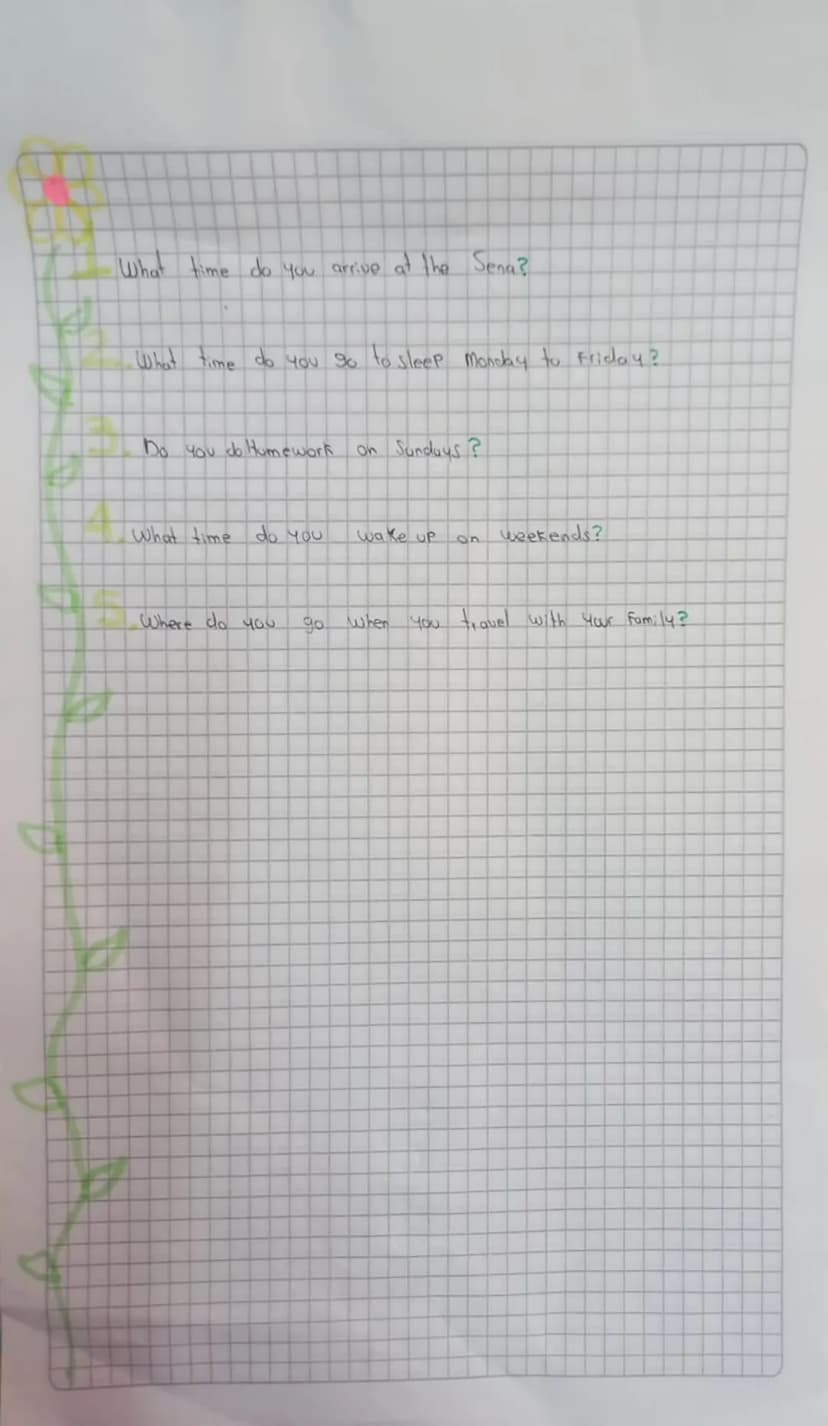 1. What time do you arrive at the Sena?
2. What time do you go to sleep Monday to Friday?
3. Do you do Homework on Sundays?
4. What time do you wake up on weekends?
5. Where do you go when you travel with your Family?